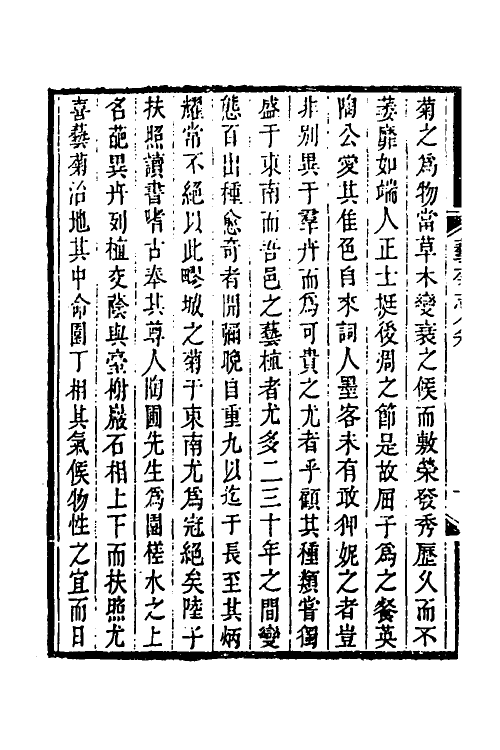 菊之爲物當草木變衰之候而敷榮發秀歷久而不
萎靡如端人正士挺後凋之節是故屈子爲之餐英
陶公愛其隹色自來詞人墨客未有敢仰妮之者豈
非别異于羣卉而爲可貴之尤者乎顧其種類嘗獨
盛于東南而吾邑之藝植者尤多二三十年之間變
態百出種愈奇者開彌晚自重九以迄于長至其炳
耀常不絕以此疁城之菊于東南尤爲冠絕矣陸子
扶照讀書嗜古奉其尊人陶圃先生爲園槎水之上
名葩異卉列植交蔭與臺榭巖石相上下而扶照尤
喜藝菊治地其中命園丁相其氣候物性之宜而日